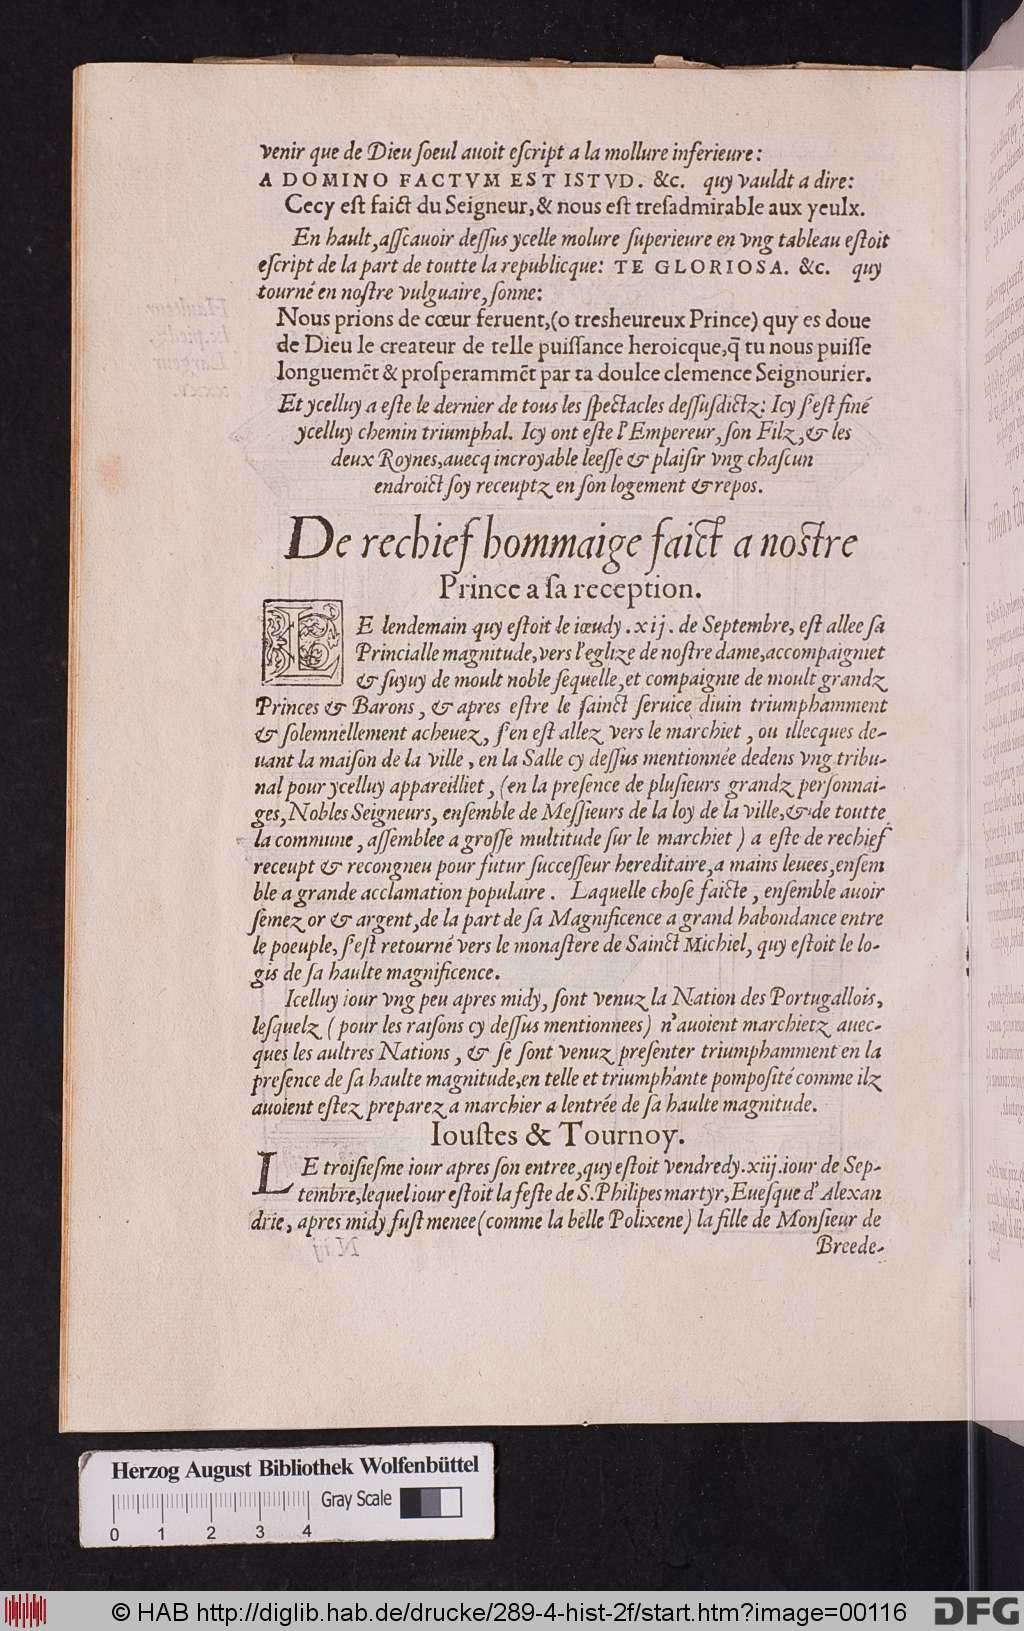 venir que de Dieu ſoeul auoit eſcript a la mollure inferieure:
A DOMINO FACTVM EST ISTVD. &c. quy vauldt a dire:
Cecy eſt faict du Seigneur, & nous eſt treſadmirable aux yeulx.
En hault, aſſcauoir deſſus ycelle molure ſuperieure en vng tableau eſtoit
eſcript de la part de toutte la republicque: TE GLORIOSA. &c. quy
tourné en noſtre vulguaire, ſonne:
Nous prions de cœur feruent, (o tresheureux Prince) quy es doue
de Dieu le createur de telle puiſſance heroicque, q̃ tu nous puiſſe
longuemẽt & proſperammẽt par ta doulce clemence Seignourier.
Et ycelluy a eſte le dernier de tous les ſpectacles deſſuſdictz: Icy ſ'eſt finé
ycelluy chemin triumphal. Icy ont eſte l'Empereur, ſon Filz, & les
deux Roynes, auecq incroyable leeſſe & plaiſir vng chaſcun
endroict ſoy receuptz en ſon logement & repos.
De rechief hommaige faict a noſtre
Prince a ſa reception.
LE lendemain quy eſtoit le iœudy .xij. de Septembre, eſt allee ſa
Princialle magnitude, vers l'eglize de noſtre dame, accompaigniet
& ſuyuy de moult noble ſequelle, et compaignie de moult grandz
Princes & Barons, & apres eſtre le ſainct ſeruice diuin triumphamment
& ſolemnellement acheuez, ſ'en eſt allez vers le marchiet, ou illecques de-
uant la maiſon de la ville, en la Salle cy deſſus mentionnée dedens vng tribu-
nal pour ycelluy appareilliet, (en la preſence de pluſieurs grandz perſonnai-
ges, Nobles Seigneurs, enſemble de Meſſieurs de la loy de la ville, & de toutte
la commune, aſſemblee a groſſe multitude ſur le marchiet) a eſte de rechief
receupt & recongneu pour futur ſucceſſeur hereditaire, a mains leuees, enſem
ble a grande acclamation populaire. Laquelle choſe faicte, enſemble auoir
ſemez or & argent, de la part de ſa Magnificence a grand habondance entre
le poeuple, ſ'eſt retourné vers le monaſtere de Sainct Michiel, quy eſtoit le lo-
gis de ſa haulte magnificence.
Icelluy iour vng peu apres midy, ſont venuz la Nation des Portugallois,
leſquelz (pour les raiſons cy deſſus mentionnees) n'auoient marchietz auec-
ques les aultres Nations, & ſe ſont venuz preſenter triumphamment en la
preſence de ſa haulte magnitude, en telle et triumphante pompoſité comme ilz
auoient eſtez preparez a marchier a lentrée de ſa haulte magnitude.
Iouſtes & Tournoy.
LE troiſieſme iour apres ſon entree, quy eſtoit vendredy .xiij. iour de Sep-
tembre, lequel iour eſtoit la feſte de S. Philipes martyr, Eueſque d'Alexan
drie, apres midy fuſt menee (comme la belle Polixene) la fille de Monſieur de
Breede-
Herzog August Bibliothek Wolfenbüttel
Gray Scale
0 1 2 3 4
© HAB http://diglib.hab.de/drucke/289-4-hist-2f/start.htm?image=00116
DFG